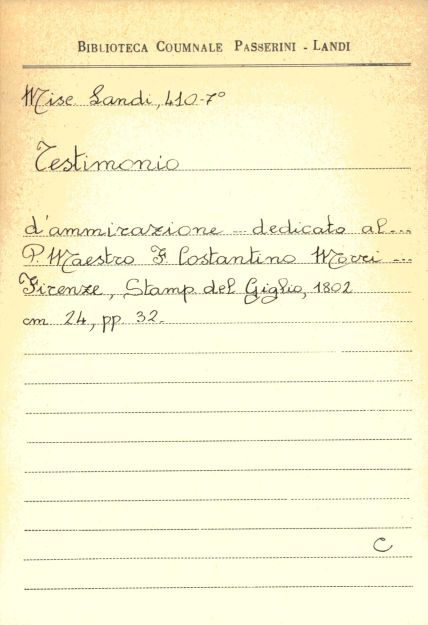 BIBLIOTECA COUMNALE PASSERINI - LANDI
Misc Landi, 410-7º
Testimonio
d'ammirazione ... dedicato al ...
P. Maestro F. Costantino Morri ...
Firenze, Stamp. del Giglio, 1802
cm 24, pp. 32.
C